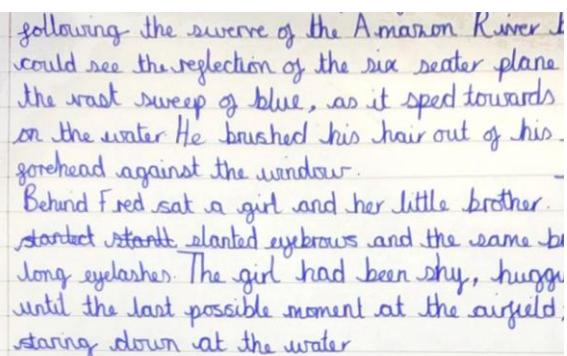 following the swerve of the Amazon River b
could see the reflection of the six seater plane
the vast sweep of blue, as it sped towards
on the water He brushed his hair out of his
forehead against the window.
Behind Fred sat a girl and her little brother.
slanted eyebrows and the same b
long eyelashes. The girl had been shy, huggi
until the last possible moment at the airfield;
staring down at the water